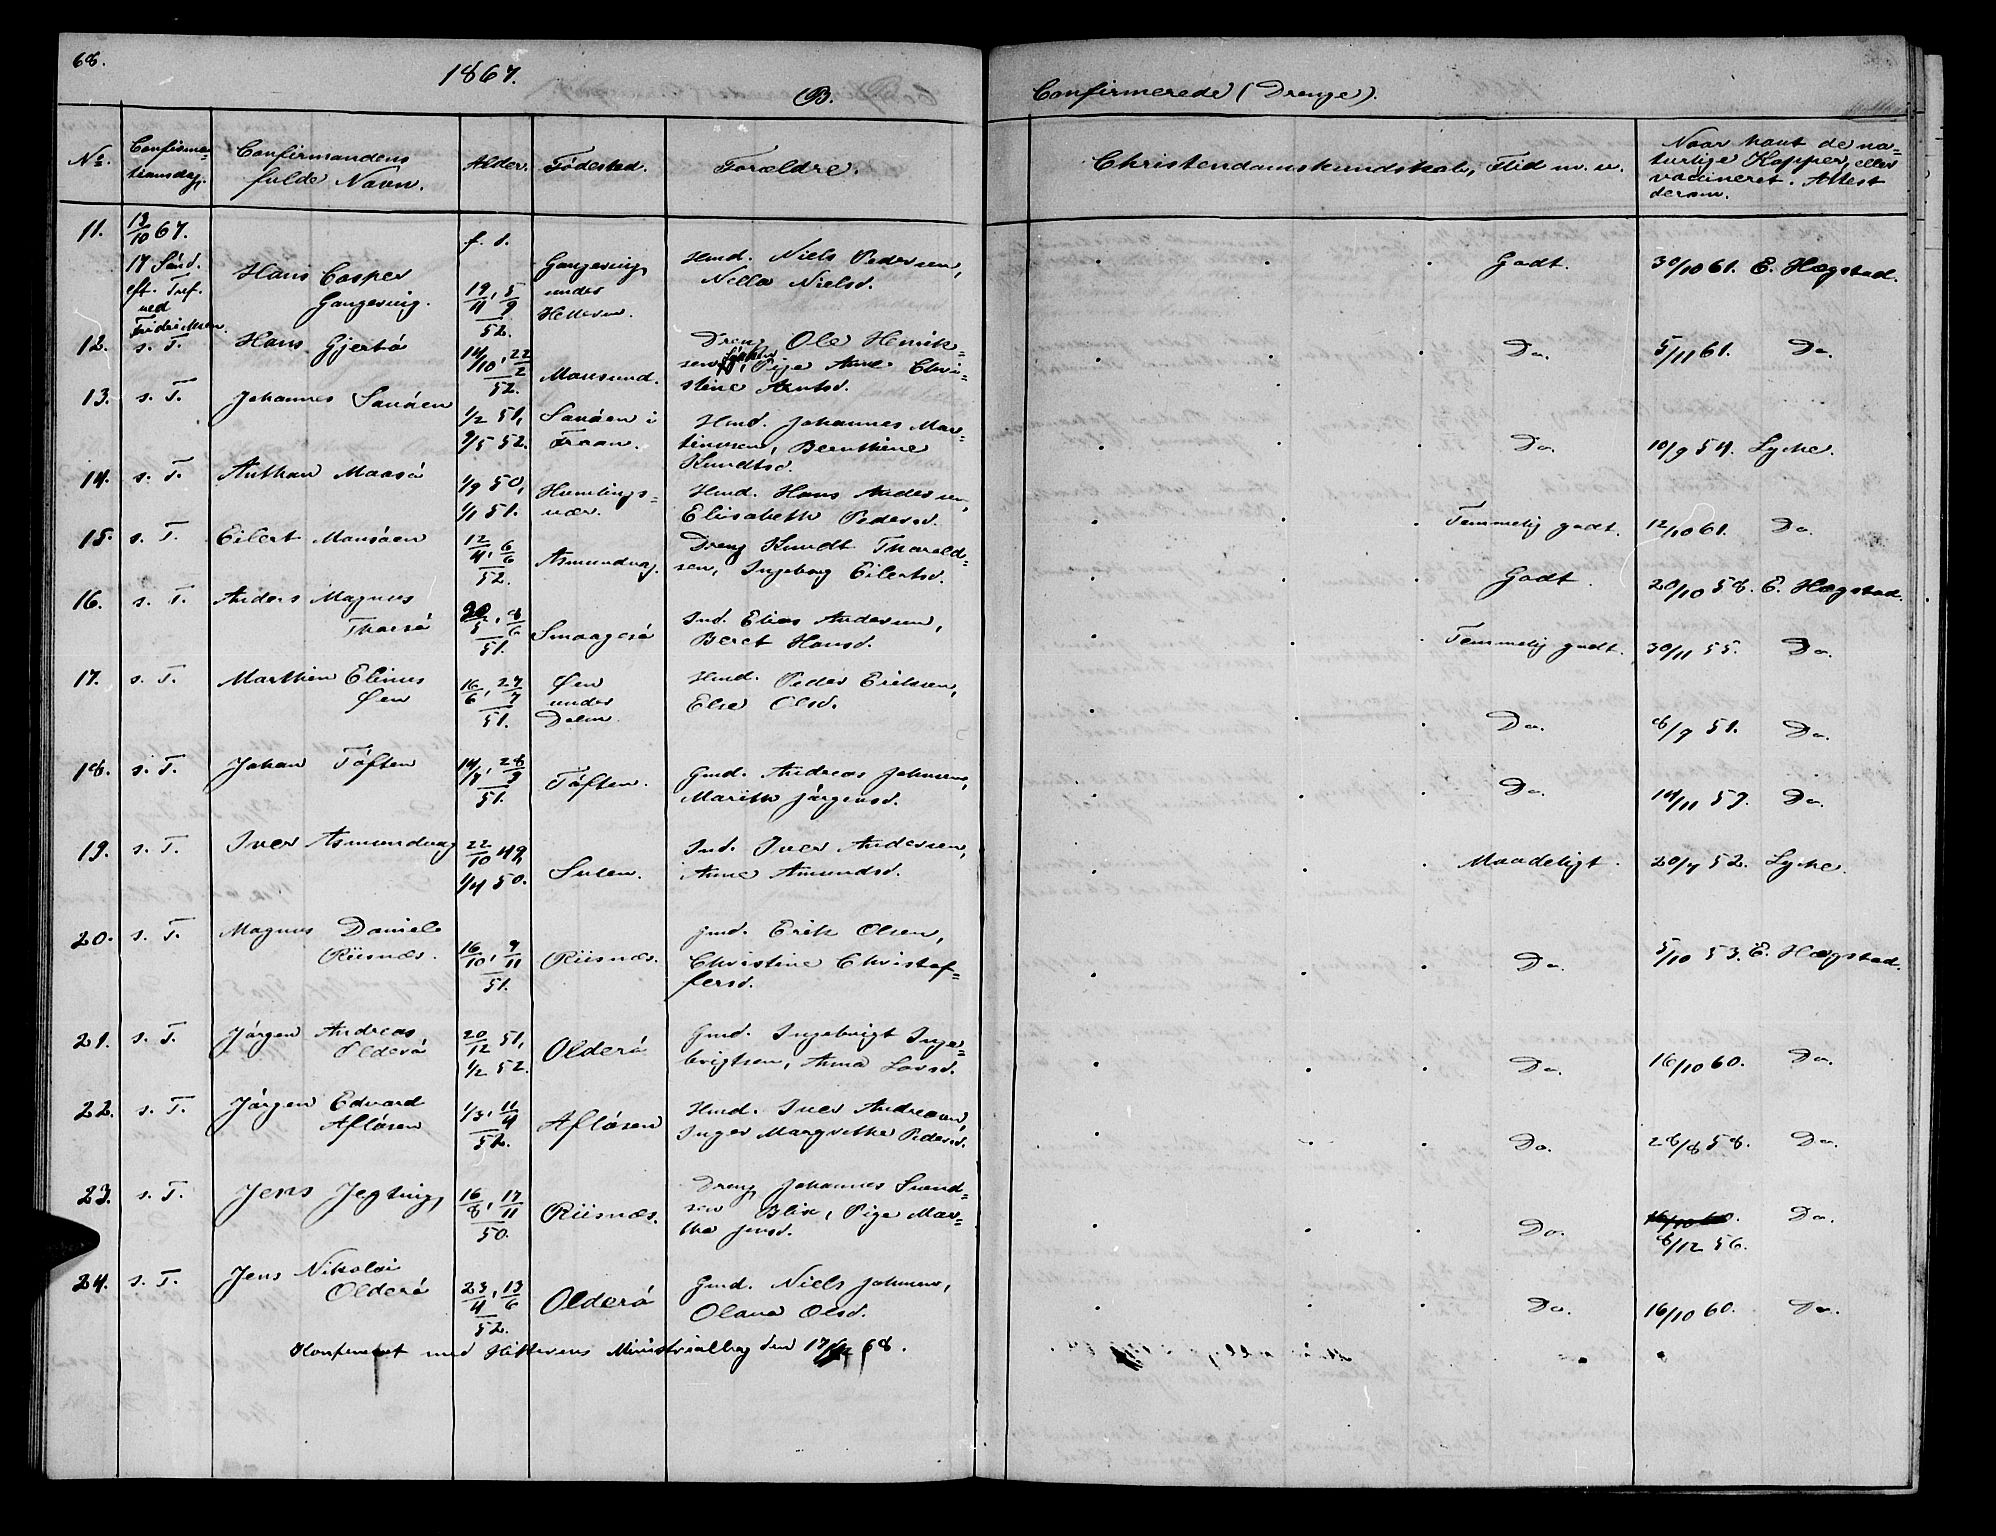 68.
1867.
B.
Confirmerede (Drenge).
No. Confirma=tionsdag. Confirmandens fulde Navn. Alder. Fødested. Forældre. Christendomskundskab, Flid m. v. Naar havt de na=turlige Kopper, eller vaccineret. Attest derom.
11. 13/10 67. 17 Sönd. eft. Tref. ved Hans Casper f. d. 19/4, 5/9 52. under Hitteren. Hmd. Niels Pedersen, Nilla Nielsd. Godt. 30/10 61. E. Hægstad.
12. s. T. Hans Gjertö 14/10, 22/2 52. Mausund. Dreng Ole Henrik=sen, Pige Ane Chri=stine Arntsd. Do. 5/11 61. Do.
13. s. T. Johannes Sandöen 1/2 51, 9/5 52. Sandöen i Froan. Hmd. Johannes Mar=tinusen, Bernthine Knudtsd. Do. 10/9 54. Lyche.
14. s. T. Anthon Maasö 1/9 50, 1/1 51. Humlings=vær. Hmd. Hans Andersen, Elisabeth Pedersd. Temmelig godt. 12/10 61. Do.
15. s. T. Eilert Mausöen 12/4, 6/6 52. Asmundvag. Dreng Knudt Thorald=sen, Ingeborg Eilertsd. Godt. 20/10 58. E. Hægstad.
16. s. T. Anders Magnus Thorsö 20/5, 8/6 51. Smaagesö Ind. Elias Andersen, Beret Hansd. Temmelig godt. 30/11 55. Do.
17. s. T. Marthin Elinus Øen 16/6, 27/7 51. Øen under Dolm. Hmd. Peder Eriksen, Else Olsd. Do. 8/9 51. Do.
18. s. T. Johan Töften 14/7, 28/9 51. Töften. Gmd. Andreas Johnsen, Marith Jörgensd. Do. 14/11 57. Do.
19. s. T. Iver Asmundvag 22/10 49, 1/4 50. Sulen. Ind. Iver Andersen, Anne Amundsd. Maadeligt. 20/7 52. Lyche.
20. s. T. Magnus Daniel Riisnæs. 16/10, 9/11 51. Riisnæs. Gmd. Erik Olsen, Christine Christof=fersd. Do. 5/10 53. E. Hægstad.
21. s. T. Jörgen Andreas Olderö 20/12 51, 1/2 52. Olderö Gmd. Ingebrigt Inge=brigtsen, Anna Larsd. Do. 16/10 60. Do.
22. s. T. Jörgen Edvard Aflösen 1/3, 11/4 52. Aflösen Hmd. Iver Andreasen, Inger Margrethe Pedersd. Do. 28/8 58. Do.
23. s. T. Jens Jegting 16/8, 17/11 50. Riisnæs. Dreng Johannes Svend=sen Blix, Pige Mar=tha Jensd. Do. 8/12 56. Do.
24. s. T. Jens Nikolai Olderö 23/4, 13/6 52. Olderö Gmd. Niels Johnsen, Olava Olsd. Do. 16/10 60. Do.
med Hitterens Ministrialbog den 17/12 68.